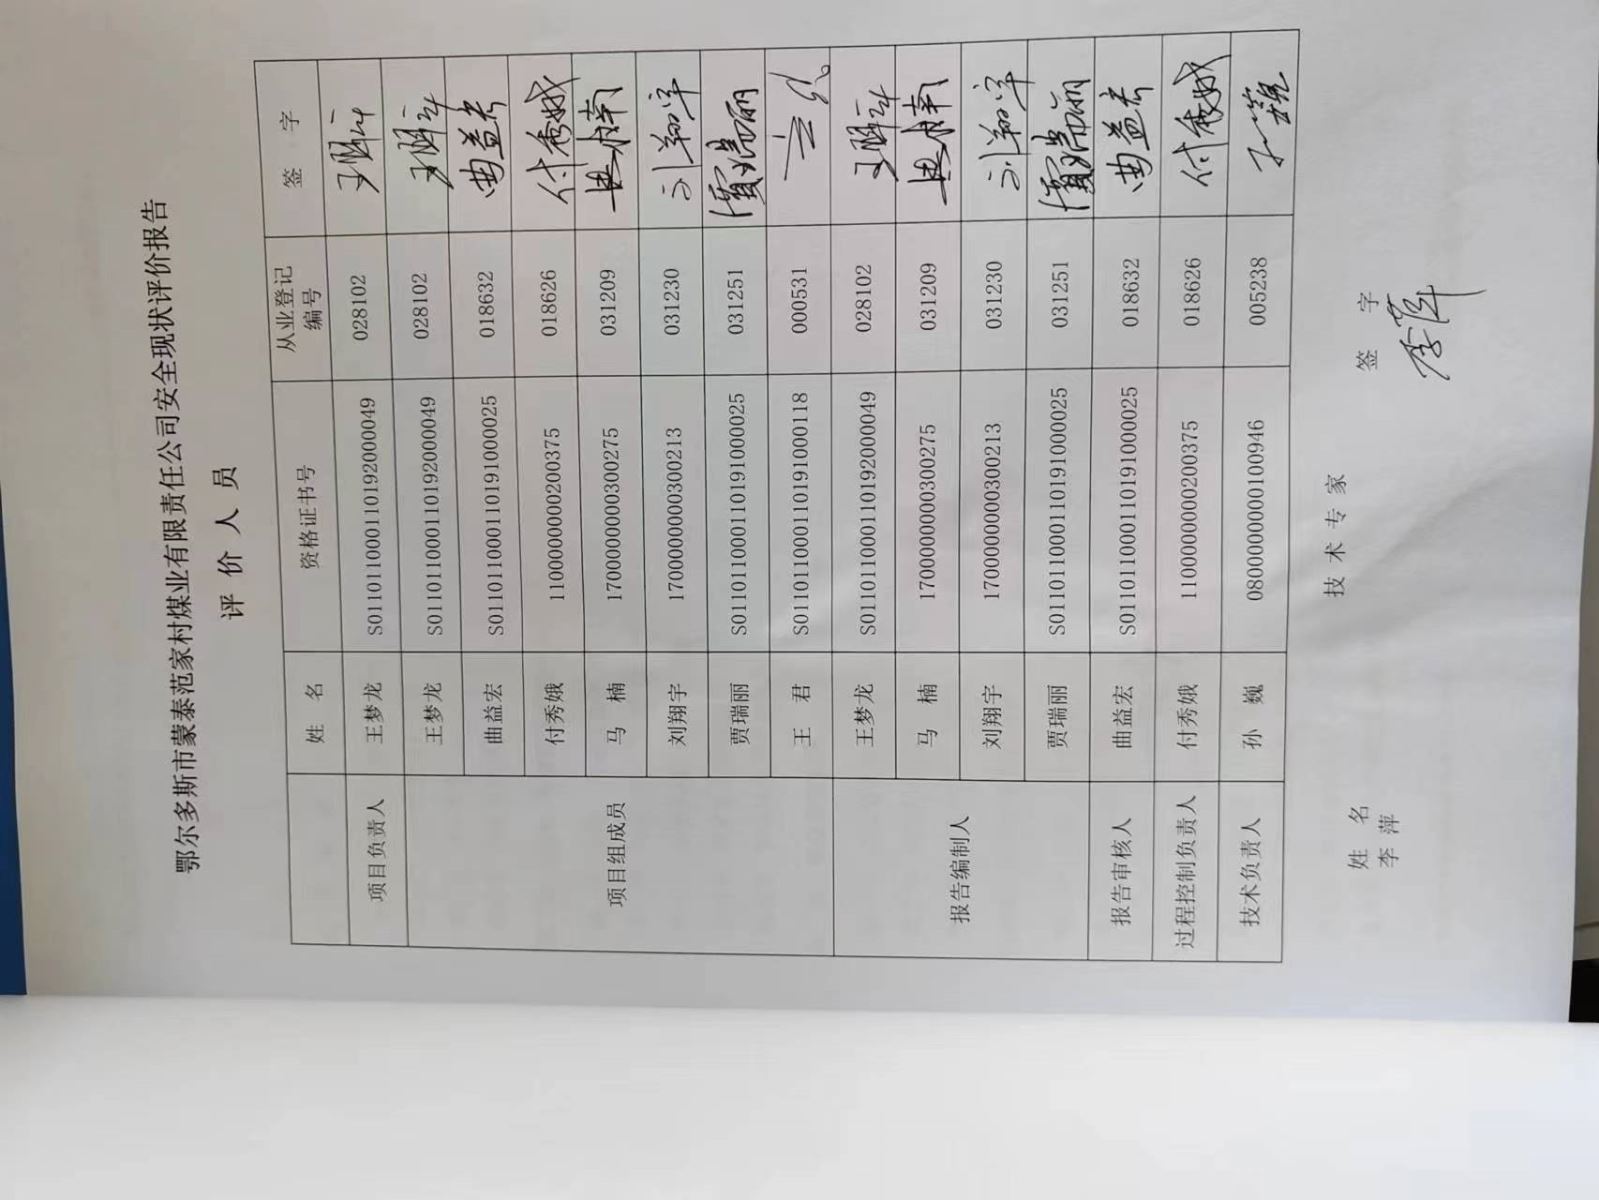 鄂尔多斯市蒙泰范家村煤业有限责任公司安全现状评价报告
评价人员
姓 名 资格证书号 从业登记编号 签 字
项目负责人 王梦龙 S011011000110192000049 028102
项目组成员 王梦龙 S011011000110192000049 028102
曲益宏 S011011000110191000025 018632 曲益宏
付秀娥 1100000000200375 018626 付秀娥
马 楠 1700000000300275 031209 马楠
刘翔宇 1700000000300213 031230 刘翔宇
贾瑞丽 S011011000110191000025 031251 贾瑞丽
王 君 S011011000110191000118 000531
报告编制人 王梦龙 S011011000110192000049 028102
马 楠 1700000000300275 031209 马楠
刘翔宇 1700000000300213 031230 刘翔宇
贾瑞丽 S011011000110191000025 031251 贾瑞丽
报告审核人 曲益宏 S011011000110191000025 018632 曲益宏
过程控制负责人 付秀娥 1100000000200375 018626 付秀娥
技术负责人 孙 巍 0800000000100946 005238 孙巍
技术专家
姓 名 签 字
李 萍 李萍